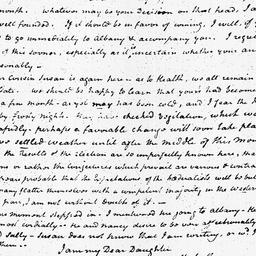 month. whatever may be your decision on that head. I am
well founded. If it should be in favor of coming, I will, if y
to go immediately to albany & accompany you. I regre
of this sooner, especially as it is uncertain whether you are
sonably —
Cousin Susan is again here — as to Health, we all remain
State. we should be happy to learn that yours had become
a few month. as yet may has been cold, and I fear the h
by frosty nights has checked vegetation, which we
perhaps a favorable change will soon take pla
settled weather until after the middle of this mon
the results of the election are so imperfectly known here, tha
or rather the conjectures which prevail are various & contra
probable that the expectations of the federalists will be but
many flatter themselves with a competent majority in the Western
pair, I am not without doubts of it. —
moment stepped in. I mentioned me going to albany — He
most cordially — He and Nancy desire to be very affectionately
Sally — Susan does not know that I am writing, or wd. h
them —
I am my Dear Daughter